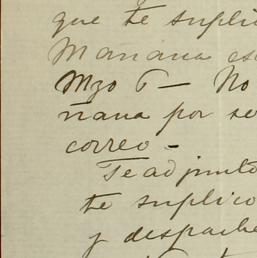 que te supli
Manana es
Mzo 6 — No
ñana por se
correo -
Te adjunto
te suplico
y despache